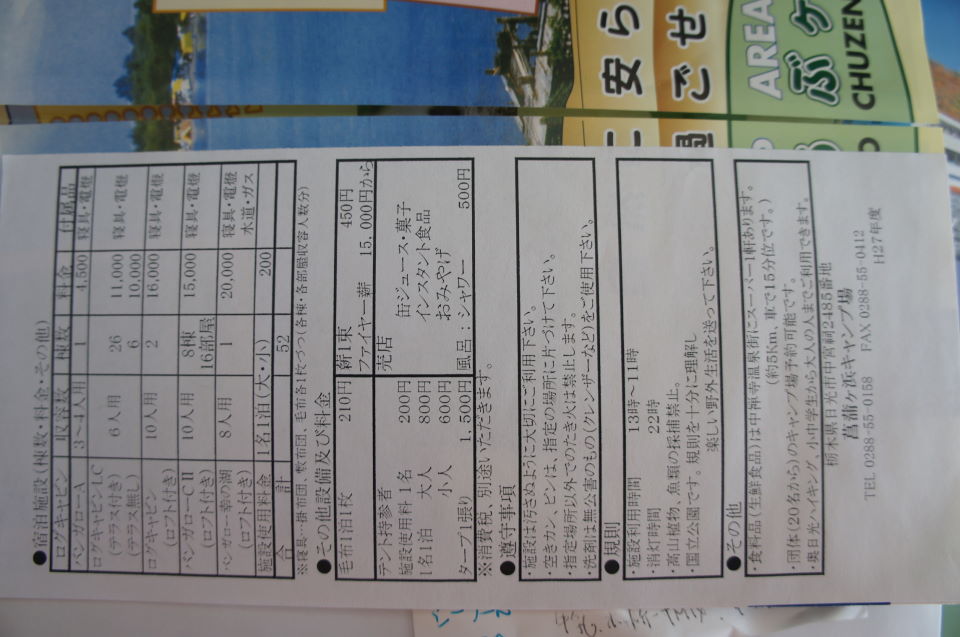 ●宿泊施設(棟数・料金・その他)
ログキャビン 収容数 棟数 料金 付属品
バンガローA 3~4人用 1 4,500 寝具・電燈
ログキャビンLC
(テラス付き) 6人用 26 11,000 寝具・電燈
(テラス無し) 6 10,000
ログキャビン 10人用 2 16,000 寝具・電燈
(ロフト付き)
バンガローCⅡ 10人用 8棟 15,000 寝具・電燈
(ロフト付き) 16部屋
バンガロー幸の湖 8人用 1 20,000 寝具・電燈
(ロフト付き) 水道・ガス
施設使用料金 1名1泊(大・小) 200
合 計 52
※寝具・・掛布団、敷布団、毛布各1枚づつ(各棟・各部屋収容人数分)
●その他設備及び料金
毛布1泊1枚 210円 薪1束 450円
ファイヤー薪 15,000円から
テント持参者 売店
施設使用料1名 200円 缶ジュース・菓子
1名1泊 大人 800円 インスタント食品
小人 600円 おみやげ
タープ1張り 1,500円 風呂:シャワー 500円
※消費税、別途いただきます。
●遵守事項
施設は汚さぬように大切にご利用下さい。
・空きカン、ビンは、指定の場所に片づけて下さい。
・指定場所以外でのたき火は禁止します。
・洗剤は無公害のもの(クレンザーなど)をご使用下さい。
●規則
・施設利用時間 13時~11時
・消灯時間 22時
・高山植物、魚類の採捕禁止。
・国立公園です。規則を十分に理解し
楽しい野外生活を送って下さい。
●その他
・食料品(生鮮食品)は中禅寺温泉街にスーパー1軒あります。
(約5Km、車で15分位です。)
・団体(20名から)のキャンプ場予約可能です。
・奥日光ハイキング、小中学生から大人の人までご利用できます。
栃木県日光市中宮祠2485番地
菖蒲ヶ浜キャンプ場
TEL 0288-55-0158 FAX 0288-55-0412
H27年度
安ら
ごせ
AREA
ぶケ
CHUZEN